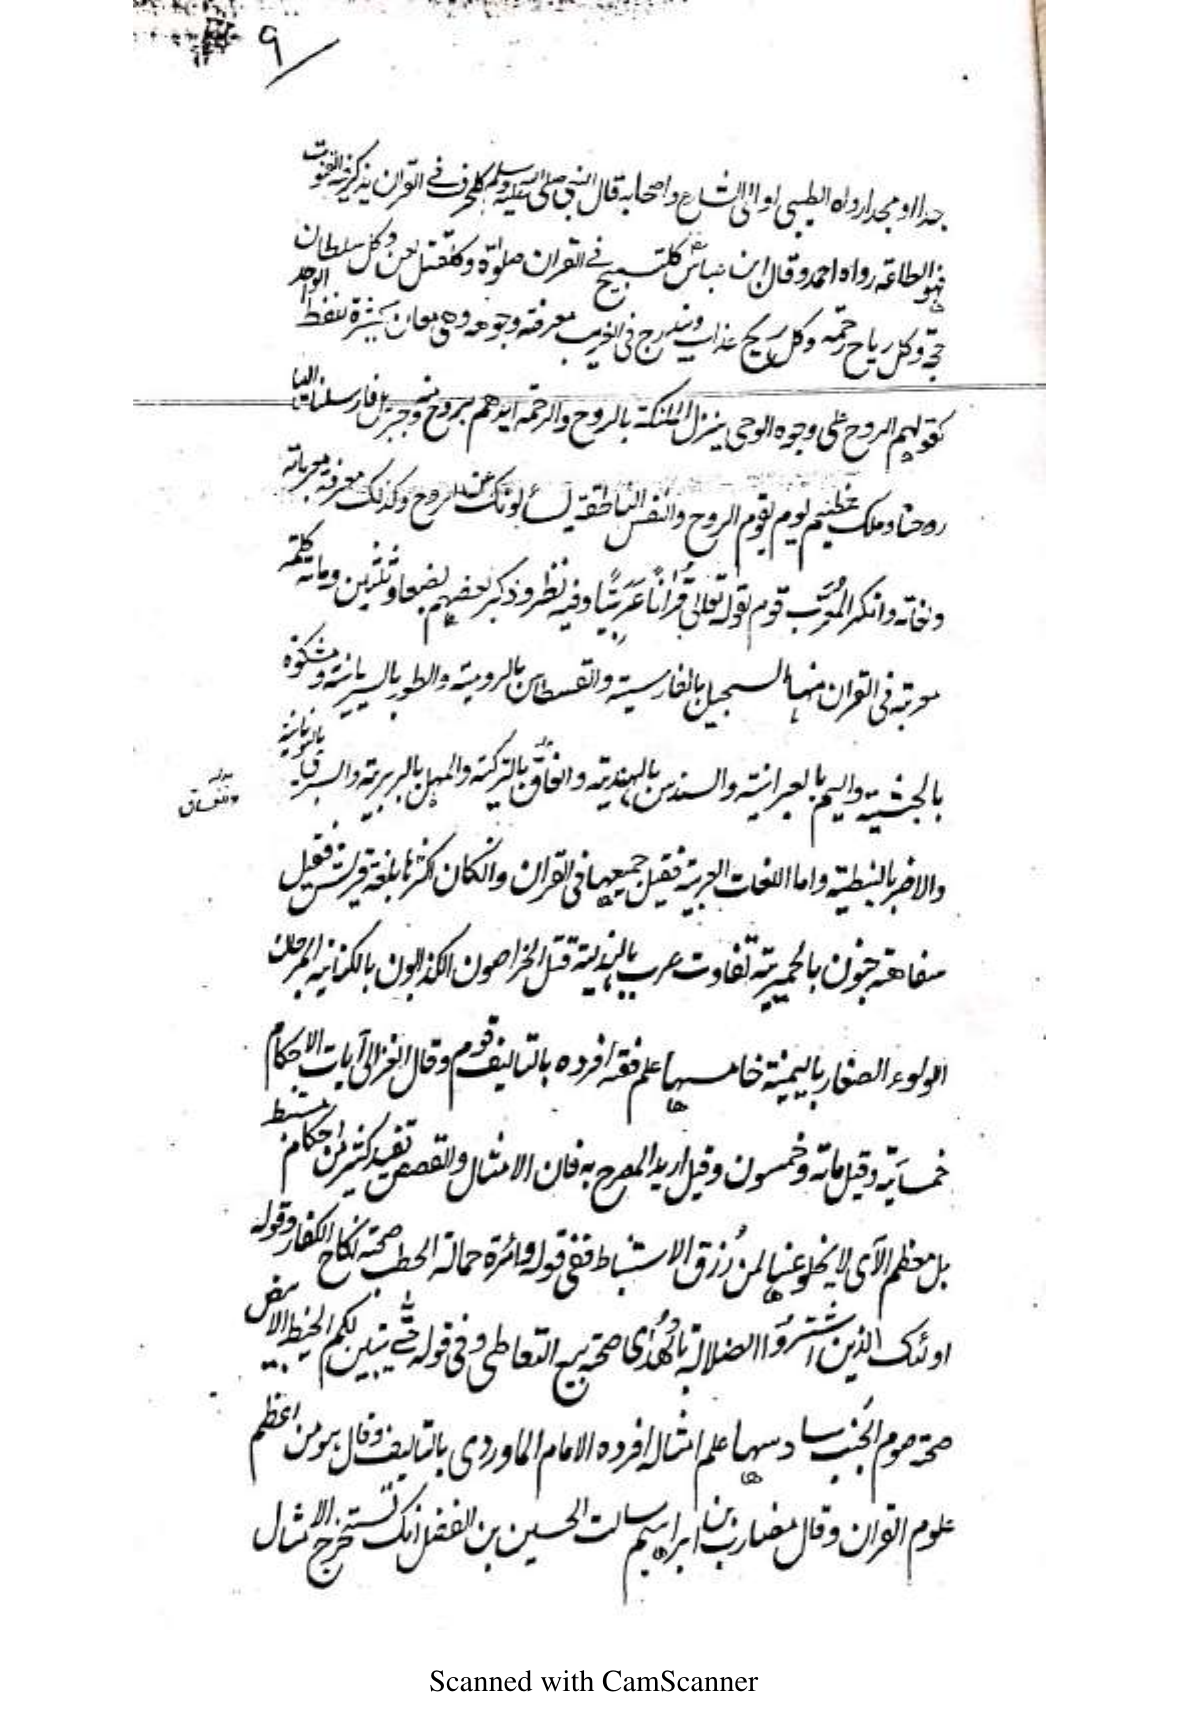 ٩
جدا او مجدا رواه الطيبى او الى الشارع واصحابه قال النبى صلى الله عليه وسلم كلحرف فى القران يذكر فيه القنوت
فهو الطاعة رواه احمد وقال ابن عباس كلتسبيح فى القران صلوة وكلقتل لعن وكل سلطان
حجة وكل رياح رحمة وكل ريح عذاب ويندرج فى الغريب معرفة وجوهه وهى معان كثيرة للفظ الواحد
كقولهم الروح على وجوه الوحى ينزل الملئكة بالروح والرحمة ايدهم بروح منه وجبرئل فارسلنا اليها
روحنا وملك عظيم يوم يقوم الروح والنفس الناطقة يسألونك عن الروح وكذلك معرفة معرباته
ولغاته وانكر المعرب قوم لقوله تعالى قرانا عربيا وفيه نظر وذكر بعضهم بضعا وثلثين ومائة كلمة
معربة فى القران منها السجيل بالفارسية والقسطاس بالرومية والطور بالسريانية ومشكوة
بالحبشية واليم بالعبرانية والسندس بالهندية والغاق بالتركية والمهل بالبربرية والسرى باليونانية
والغساق
والاخر بالنبطية واما اللغات العربية فقيل جميعها فى القران وانكان اكثرها بلغة قريش فقيل
سفاهة جنون بالحميرية تفاوت عيب بالهذيلية قتل الخراصون الكذابون بالكنانية المرجان
اللولوء الصغار باليمنية خامسها علم فقه افرده بالتاليف قوم وقال الغزالى آيات الاحكام
خمسمأية وقيل مائة وخمسون وقيل اريد المصرح به فان الامثال والقصص تفيد كثير من احكام مستنبط
بل معظم الآى لا يخلو عنها لمن رزق الاستنباط ففى قوله وامرأة حمالة الحطب صحة نكاح الكفار وقوله
اولئك الذين اشتروا الضلالة بالهدى صحة بيع التعاطى وفى قوله حتى يتبين لكم الخيط الابيض
صحة صوم الجنب سادسها علم امثاله افرده الامام الماوردى بالتاليف وقال هو من اعظم
علوم القران وقال مضارب بن ابراهيم سالت الحسين بن الفضل انك تستخرج الامثال
Scanned with CamScanner